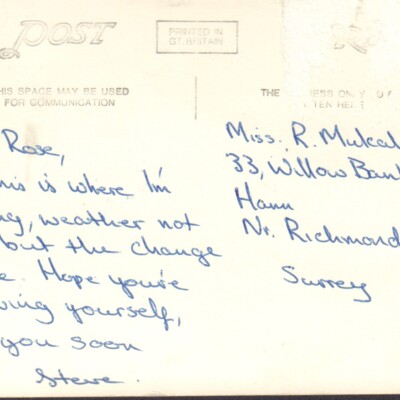 POST
PRINTED IN
GT. BRITAIN
HIS SPACE MAY BE USED
FOR COMMUNICATION
THE ESS ONLY
TEN HERE
Rose,
his is where I'm
ng, weather not
but the change
e. Hope you're
ying yourself,
you soon
Steve.
Miss. R. Mulcal
33, Willow Bank
Ham
Nr. Richmond
Surrey